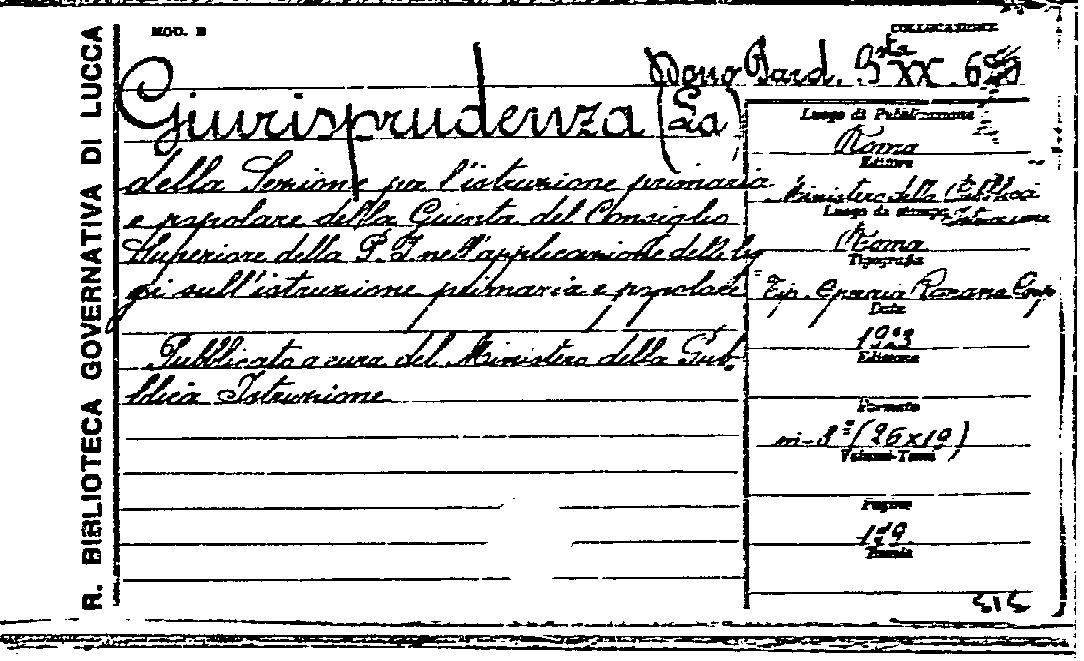 R. BIBLIOTECA GOVERNATIVA DI LUCCA
MOD. B
COLLOCAZIONE
Dono Bard. Bsta XX. 6
Giurisprudenza (La)
della Sezione per l'istruzione primaria
e popolare della Giunta del Consiglio
Superiore della P. I nell'applicazione delle leg
gi sull'istruzione primaria e popolare
Pubblicato a cura del Ministero della Pub-
blica Istruzione
Luogo di Pubblicazione
Roma
Editore
Ministero della Pubblica
Istruzione
Luogo di stampa
Roma
Tipografia
Tip. Operaia Romana Coop
Data
1923
Edizione
Formato
in-8º (26x19)
Volumi-Tomi
Pagine
Tavole